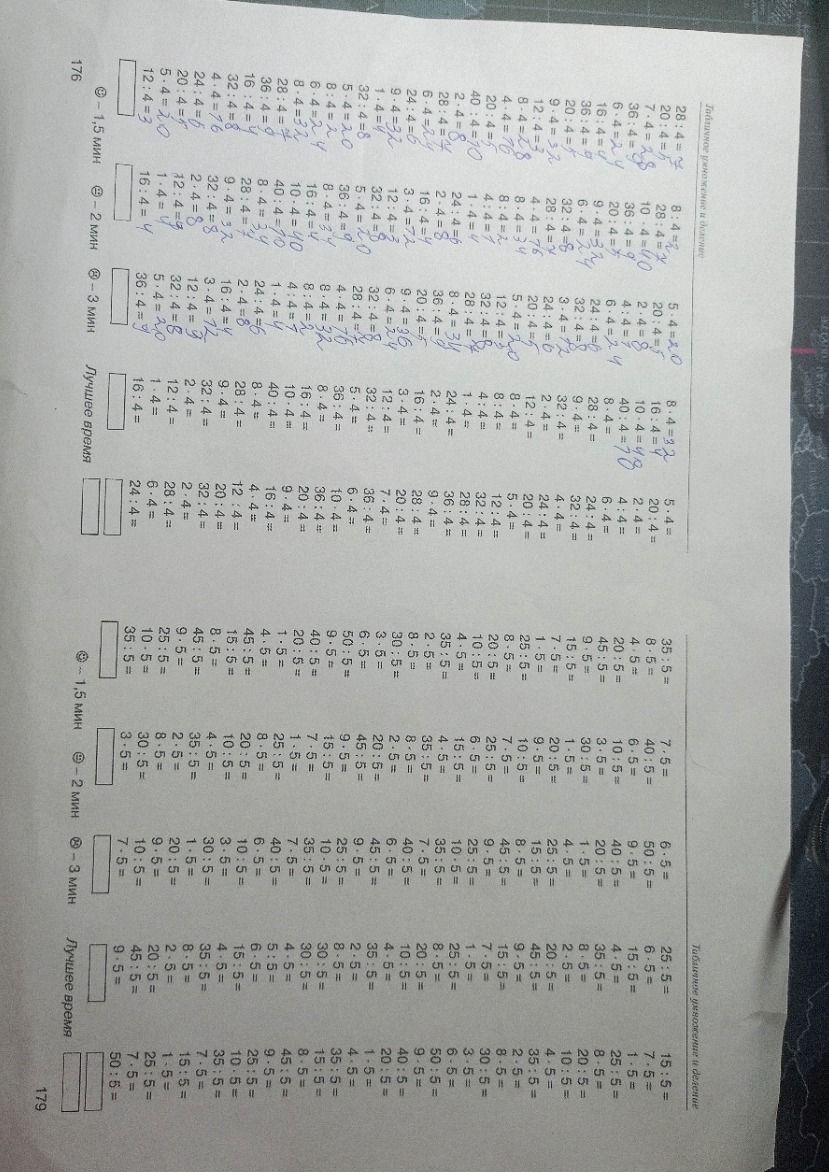 Табличное умножение и деление
28 : 4 = 7
20 : 4 = 5
7 · 4 = 28
36 : 4 = 9
6 · 4 = 24
16 : 4 = 4
36 : 4 = 9
20 : 4 = 5
9 · 4 = 32
12 : 4 = 3
8 · 4 = 28
4 · 4 = 16
20 : 4 = 5
40 : 4 = 10
2 · 4 = 8
28 : 4 = 7
6 · 4 = 24
24 : 4 = 6
9 · 4 = 32
1 · 4 = 4
32 : 4 = 8
5 · 4 = 20
8 : 4 = 2
6 · 4 = 24
8 · 4 = 32
28 : 4 = 7
36 : 4 = 9
16 : 4 = 4
32 : 4 = 8
4 · 4 = 16
24 : 4 = 6
20 : 4 = 5
5 · 4 = 20
12 : 4 = 3
8 : 4 = 2
28 : 4 = 7
10 · 4 = 40
36 : 4 = 9
20 : 4 = 5
9 · 4 = 32
6 · 4 = 24
32 : 4 = 8
28 : 4 = 7
4 · 4 = 16
8 · 4 = 34
8 : 4 = 2
4 : 4 = 1
1 · 4 = 4
24 : 4 = 6
2 · 4 = 8
16 : 4 = 4
3 · 4 = 12
12 : 4 = 3
32 : 4 = 8
5 · 4 = 20
36 : 4 = 9
8 · 4 = 34
16 : 4 = 4
10 · 4 = 40
40 : 4 = 10
8 · 4 = 34
28 : 4 = 7
9 · 4 = 32
32 : 4 = 8
2 · 4 = 8
12 : 4 = 9
1 · 4 = 4
16 : 4 = 4
5 · 4 = 20
20 : 4 = 5
2 · 4 = 8
4 : 4 = 1
6 · 4 = 24
24 : 4 = 6
32 : 4 = 8
3 · 4 = 12
24 : 4 = 6
20 : 4 = 5
5 · 4 = 20
12 : 4 = 3
32 : 4 = 8
28 : 4 = 7
8 · 4 = 34
36 : 4 = 9
20 : 4 = 5
9 · 4 = 36
6 · 4 = 24
32 : 4 = 8
28 : 4 = 7
4 · 4 = 16
8 · 4 = 32
8 : 4 = 2
4 : 4 = 1
1 · 4 = 4
24 : 4 = 6
2 · 4 = 8
16 : 4 = 4
3 · 4 = 12
12 : 4 = 9
32 : 4 = 8
5 · 4 = 20
36 : 4 = 9
8 · 4 = 32
16 : 4 = 4
10 · 4 = 40
40 : 4 = 10
8 · 4 =
28 : 4 =
9 · 4 =
32 : 4 =
2 · 4 =
12 : 4 =
8 · 4 =
8 : 4 =
4 : 4 =
1 · 4 =
24 : 4 =
2 · 4 =
16 : 4 =
3 · 4 =
12 : 4 =
32 : 4 =
5 · 4 =
36 : 4 =
8 · 4 =
16 : 4 =
10 · 4 =
40 : 4 =
8 · 4 =
28 : 4 =
9 · 4 =
32 : 4 =
2 · 4 =
12 : 4 =
1 · 4 =
16 : 4 =
5 · 4 =
20 : 4 =
2 · 4 =
4 : 4 =
6 · 4 =
24 : 4 =
32 : 4 =
4 · 4 =
24 : 4 =
20 : 4 =
5 · 4 =
12 : 4 =
32 : 4 =
28 : 4 =
36 : 4 =
9 · 4 =
28 : 4 =
20 : 4 =
7 · 4 =
36 : 4 =
6 · 4 =
10 · 4 =
36 : 4 =
20 : 4 =
9 · 4 =
16 : 4 =
4 · 4 =
12 : 4 =
20 : 4 =
32 : 4 =
2 · 4 =
28 : 4 =
6 · 4 =
24 : 4 =
☺ – 1,5 мин 😐 – 2 мин ☹ – 3 мин Лучшее время
176
Табличное умножение и деление
35 : 5 =
8 · 5 =
4 · 5 =
20 : 5 =
45 : 5 =
9 · 5 =
15 : 5 =
7 · 5 =
1 · 5 =
25 : 5 =
8 · 5 =
20 : 5 =
10 : 5 =
4 · 5 =
35 : 5 =
2 · 5 =
8 · 5 =
30 : 5 =
3 · 5 =
6 · 5 =
50 : 5 =
9 · 5 =
40 : 5 =
20 : 5 =
1 · 5 =
4 · 5 =
45 : 5 =
15 : 5 =
8 · 5 =
45 : 5 =
9 · 5 =
25 : 5 =
10 · 5 =
35 : 5 =
7 · 5 =
40 : 5 =
6 · 5 =
10 : 5 =
3 · 5 =
30 : 5 =
1 · 5 =
20 : 5 =
9 · 5 =
10 : 5 =
7 · 5 =
25 : 5 =
6 · 5 =
15 : 5 =
4 · 5 =
35 : 5 =
8 · 5 =
2 · 5 =
45 : 5 =
20 : 5 =
9 · 5 =
15 : 5 =
7 · 5 =
1 · 5 =
25 : 5 =
8 · 5 =
20 : 5 =
10 : 5 =
4 · 5 =
35 : 5 =
2 · 5 =
8 · 5 =
30 : 5 =
3 · 5 =
6 · 5 =
50 : 5 =
9 · 5 =
40 : 5 =
20 : 5 =
1 · 5 =
4 · 5 =
25 : 5 =
15 : 5 =
8 · 5 =
45 : 5 =
9 · 5 =
25 : 5 =
10 · 5 =
35 : 5 =
7 · 5 =
40 : 5 =
6 · 5 =
45 : 5 =
9 · 5 =
25 : 5 =
10 · 5 =
35 : 5 =
7 · 5 =
40 : 5 =
6 · 5 =
10 : 5 =
3 · 5 =
30 : 5 =
1 · 5 =
20 : 5 =
9 · 5 =
10 : 5 =
7 · 5 =
25 : 5 =
6 · 5 =
15 : 5 =
4 · 5 =
35 : 5 =
8 · 5 =
2 · 5 =
20 : 5 =
45 : 5 =
9 · 5 =
15 : 5 =
7 · 5 =
1 · 5 =
25 : 5 =
8 · 5 =
20 : 5 =
10 : 5 =
4 · 5 =
35 : 5 =
2 · 5 =
8 · 5 =
30 : 5 =
3 · 5 =
6 · 5 =
50 : 5 =
9 · 5 =
40 : 5 =
20 : 5 =
1 · 5 =
4 · 5 =
35 : 5 =
15 : 5 =
8 · 5 =
45 : 5 =
9 · 5 =
25 : 5 =
10 · 5 =
35 : 5 =
7 · 5 =
15 : 5 =
1 · 5 =
25 : 5 =
7 · 5 =
50 : 5 =
☺ – 1,5 мин 😐 – 2 мин ☹ – 3 мин Лучшее время
179